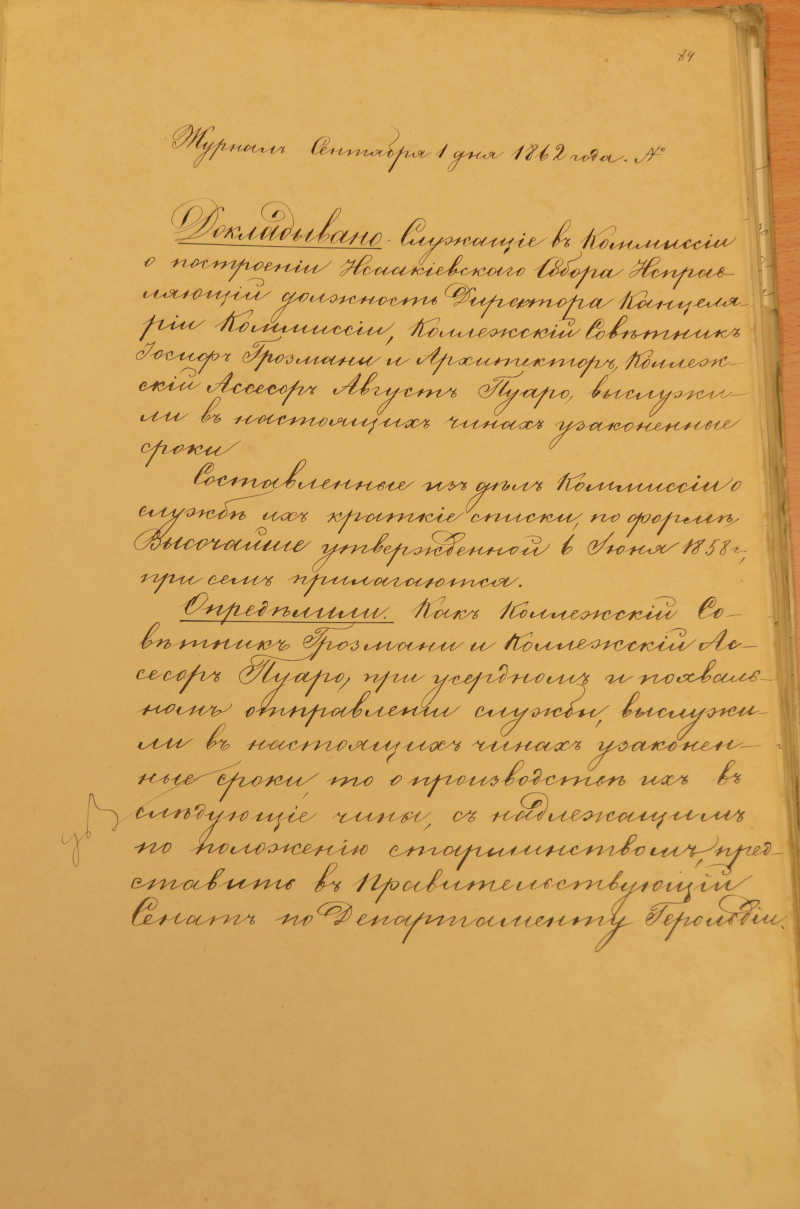 84
Журналъ Сентября 1 дня 1862 года. №
Докладывано. Служащіе въ Коммиссіи
о построеніи Исаакіевскаго Собора Исправ-
ляющій должность Директора Канцеля-
ріи Коммиссіи, Коллежскій Совѣтникъ
Іосифъ Грозмани и Архитекторъ, Коллеж-
скій Ассесоръ Августъ Пуаро, выслужи-
ли въ настоящихъ чинахъ узаконенные
сроки
Составленные изъ дѣлъ Коммиссіи о
службѣ ихъ краткіе списки, по формѣ
Высочайше утвержденной 6 Іюня 1858 г.,
при семъ прилагаются.
Опредѣлили. Какъ Коллежскій Со-
вѣтникъ Грозмани и Коллежскій Ас-
сесоръ Пуаро, при усердномъ и похваль-
номъ отправленіи службы, выслужи-
ли въ настоящихъ чинахъ узаконен-
ные сроки, то о производствѣ ихъ въ
слѣдующіе чины, съ надлежащимъ
по положенію старшинствомъ, пред-
ставить въ Правительствующій
Сенатъ по Департаменту Герольдіи.